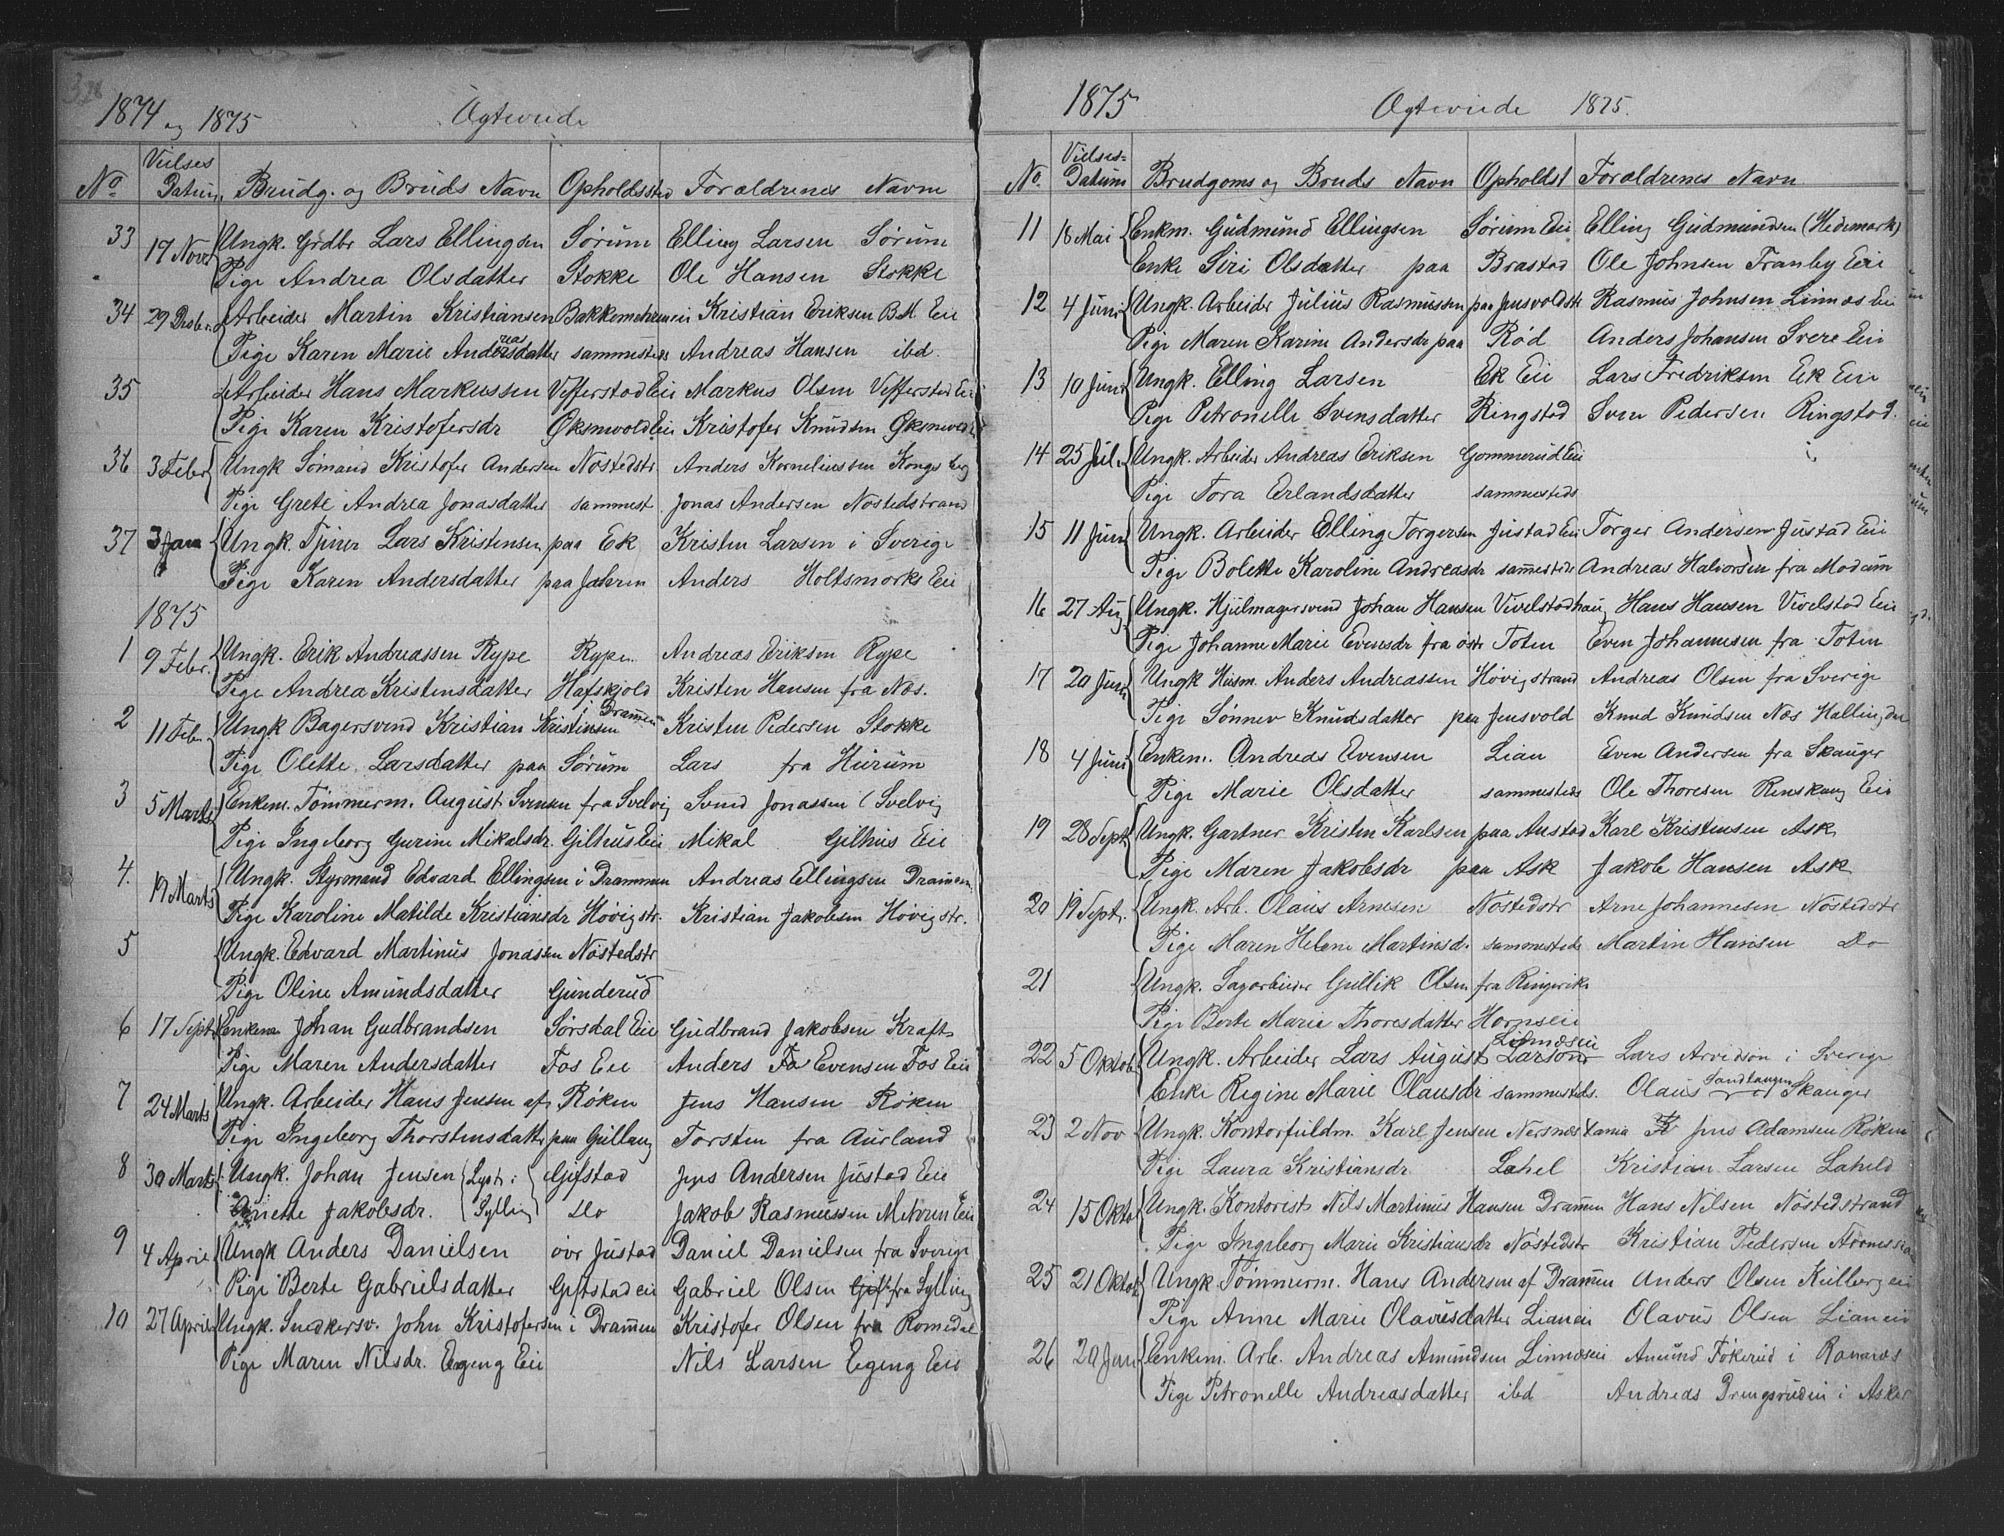 1874 og 1875 Ogteviede
No Vielses Datum Brudg. og Bruds Navn Opholdssted Forældrenes Navne
33 17 Novr Ungk. Grdbr Lars Ellingsen Sørum Elling Larsen Sørum
Pige Andrea Olsdatter Stokke Ole Hansen Stokke
34 29 Desbr. Arbeider Martin Kristiansen Kristian Eriksen B.M. Eie
Pige Karen Marie Andersdatter sammesteds Andreas Hansen ibd.
35 Arbeider Hans Markussen Vefferstad Eie Markus Olsen Vefferstad Eie
Pige Karen Kristofersdr Øksnevold Eie Kristofer Knudsen
36 3 Febr Ungk Sømand Kristofer Andersen Nøstedstr. Anders Korneliussen Kongsberg
Pige Grete Andrea Jonasdatter sammest. Jonas Andersen Nøstedstrand
37 3 Jan Ungk. Tjener Lars Kristensen paa Ek Kristen Larsen i Sverige
Pige Karen Andersdatter paa Jahren Anders Holtsmark Eie
1875
1 9 Febr. Ungk. Erik Andreassen Rype Rype Andreas Eriksen Rype
Pige Andrea Kristensdatter Hafskjold Kristen Hansen fra Næs.
i Drammen
2 11 Feb. Ungk Bagersvend Kristian Kristensen Kristen Pedersen Stokke
Pige Olette Larsdatter paa Sørum Lars fra Hurum
3 5 Marts Enkem. Tømmerm. August Svensen fra Svelvig Svend Jonassen (Svelvig
Pige Ingeborg Gurine Mikalsdr. Gilhus Eie Mikal Gilhus Eie
4. 19 Marts Ungk. Styrmand Edvard Ellingsen i Drammen Andreas Ellingsen Drammen
Pige Karoline Matilde Kristiansdr Høvigstr. Kristian Jakobsen Høvigstr.
5 Ungk. Edvard Martinus Jonassen Nøstedstr
Pige Oline Amundsdatter Gunderud
6 17 Sept Enkem Johan Gudbrandsen Sørsdal Eie Gudbrand Jakobsen Kraft
Pige Maren Andersdatter Fos Eie Anders Evensen Fos Eie
7 24 Marts Ungk. Arbeider Hans Jensen af Røken Jens Hansen Røken
Pige Ingeborg Thorstensdatter paa Gullaug Torsten fra Aurland
8 30 Marts Ungk. Johan Jensen Lyst i Gifstad Jens Andersen Justad Eie
Anette Jakobsdr. Sylling Do Jakob Rasmussen Eie
9 4 April Ungk Anders Danielsen övr Justad Daniel Danielsen fra Sverige
Pige Berte Gabrielsdatter Giftstad eie Gabriel Olsen fra Sylling
10 27 April Ungk. Snedkersv. John Kristofersen i Drammen Kristofer Olsen fra Romedal
Pige Maren Nilsdr. Egeng Eie Nils Larsen Egeng Eie
1875 Ogteviede 1875.
No. Vielses-Datum Brudgoms og Bruds Navn Opholdst Forældrenes Navn
11 18 Mai Enkm. Gudmund Ellingsen Sørum Eie Elling Gudmundsen (Hedemark)
Enke Siri Olsdatter paa Brastad Ole Johnsen Tranby Eie
12 4 Juni Ungk. Arbeider Julius Rasmussen paa Jensvoldstr Rasmus Johnsen Linnæs Eie
Pige Maren Karine Andersdr paa Rød Anders Johansen Svere Eie
13 10 Juni Ungk. Elling Larsen Ek Eie Lars Fredriksen Ek Eie
Pige Petronelle Svensdatter Ringstad Sven Pedersen Ringstad.
14 25 Jul. Ungk. Arbeider Andreas Eriksen Gommerud Eie
Pige Tora Erlandsdatter sammesteds
15 11 Juni Ungk. Arbeider Elling Torgersen Justad Eie Torger Andersen Justad Eie
Pige Bolette Karoline Andreasdr sammesteds Andreas Halvorsen fra Modum
16 27 Aug Ungk. Hjulmagersvend Johan Hansen Vivelstadhaug Hans Hansen Vivelstad Eie
Pige Johanne Marie Evensdr fra östr Toten Even Johannesen fra Toten
17 20 Juni Ungk Husm. Anders Andreassen Høvigstrand Andreas Olsen fra Sverige
Pige Sønnev Knudsdatter paa Jensvold Knud Knudsen Næs Hallingdal
18 4 Juni Enkem. Andreas Evensen Lian Even Andersen fra Skauger
Pige Marie Olsdatter sammesteds Ole Thoresen Renskaug Eie
19 28 Sept Ungk. Gartner Kristen Karlsen paa Austad Karl Kristensen Ask
Pige Maren Jakobsdr paa Ask Jakob Hansen Ask
20 19 Sept. Ungk. Arb. Olaus Arnesen Nøstedstr Arne Johannesen Nøstedstr
Pige Maren Helene Martinsd. sammesteds Martin Hansen Do
21 Ungk. Sagarbeider Gullik Olsen fra Ringerike
Pige Berte Marie Thoresdatter Hornseie
Linnæseie
22 5 Oktob Ungk. Arbeider Lars August Larson Lars Arvidson i Sverige
Enke Regine Marie Olausdr sammesteds. Olaus Sandtangen Skauger
23 2 Nov Ungk. Kontorfuldm. Karl Jensen Nersnæstania Jens Adamsen Røken
Pige Laura Kristiansdr Lahel Kristian Larsen Lahell
24 15 Oktob Ungk. Kontorist Nils Martinus Hansen Drammen Hans Nilsen Nøstedstrand
Pige Ingeborg Marie Kristiansdr Nøstedstr Kristian Pedersen
25 21 Oktob Ungk Tømmerm. Hans Andersen af Drammen Anders Olsen Kulberg eie
Pige Anne Marie Olavusdatter Lianeie Olavus Olsen Lianeie
26 20 Jan Enkem. Arb. Andreas Amundsen Linnæseie Amund Føkerud i
Pige Petronelle Andreasdatter ibd Andreas i Asker